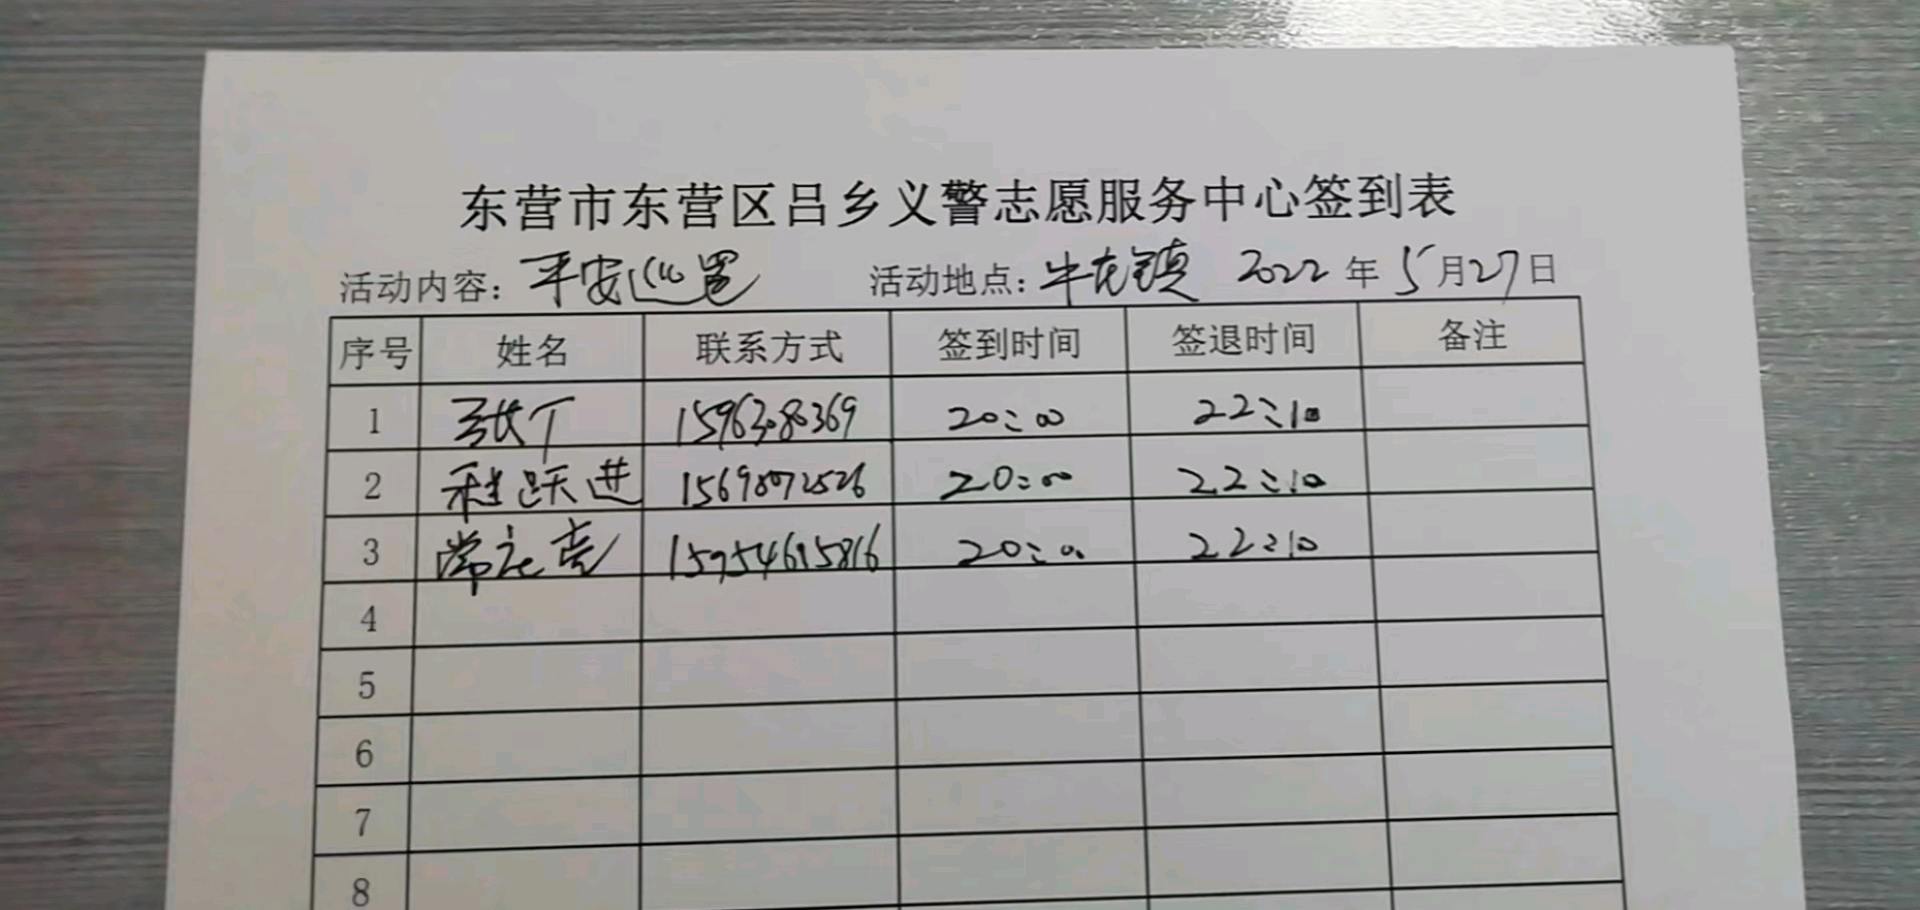 东营市东营区吕乡义警志愿服务中心签到表
活动内容: 平安巡逻 活动地点: 牛庄镇 2022 年 5 月 27 日
序号 姓名 联系方式 签到时间 签退时间 备注
1 张丁 20:00 22:10
2 程跃进 20:00 22:10
3 常 亮 15954615816 20:00 22:10
4
5
6
7
8